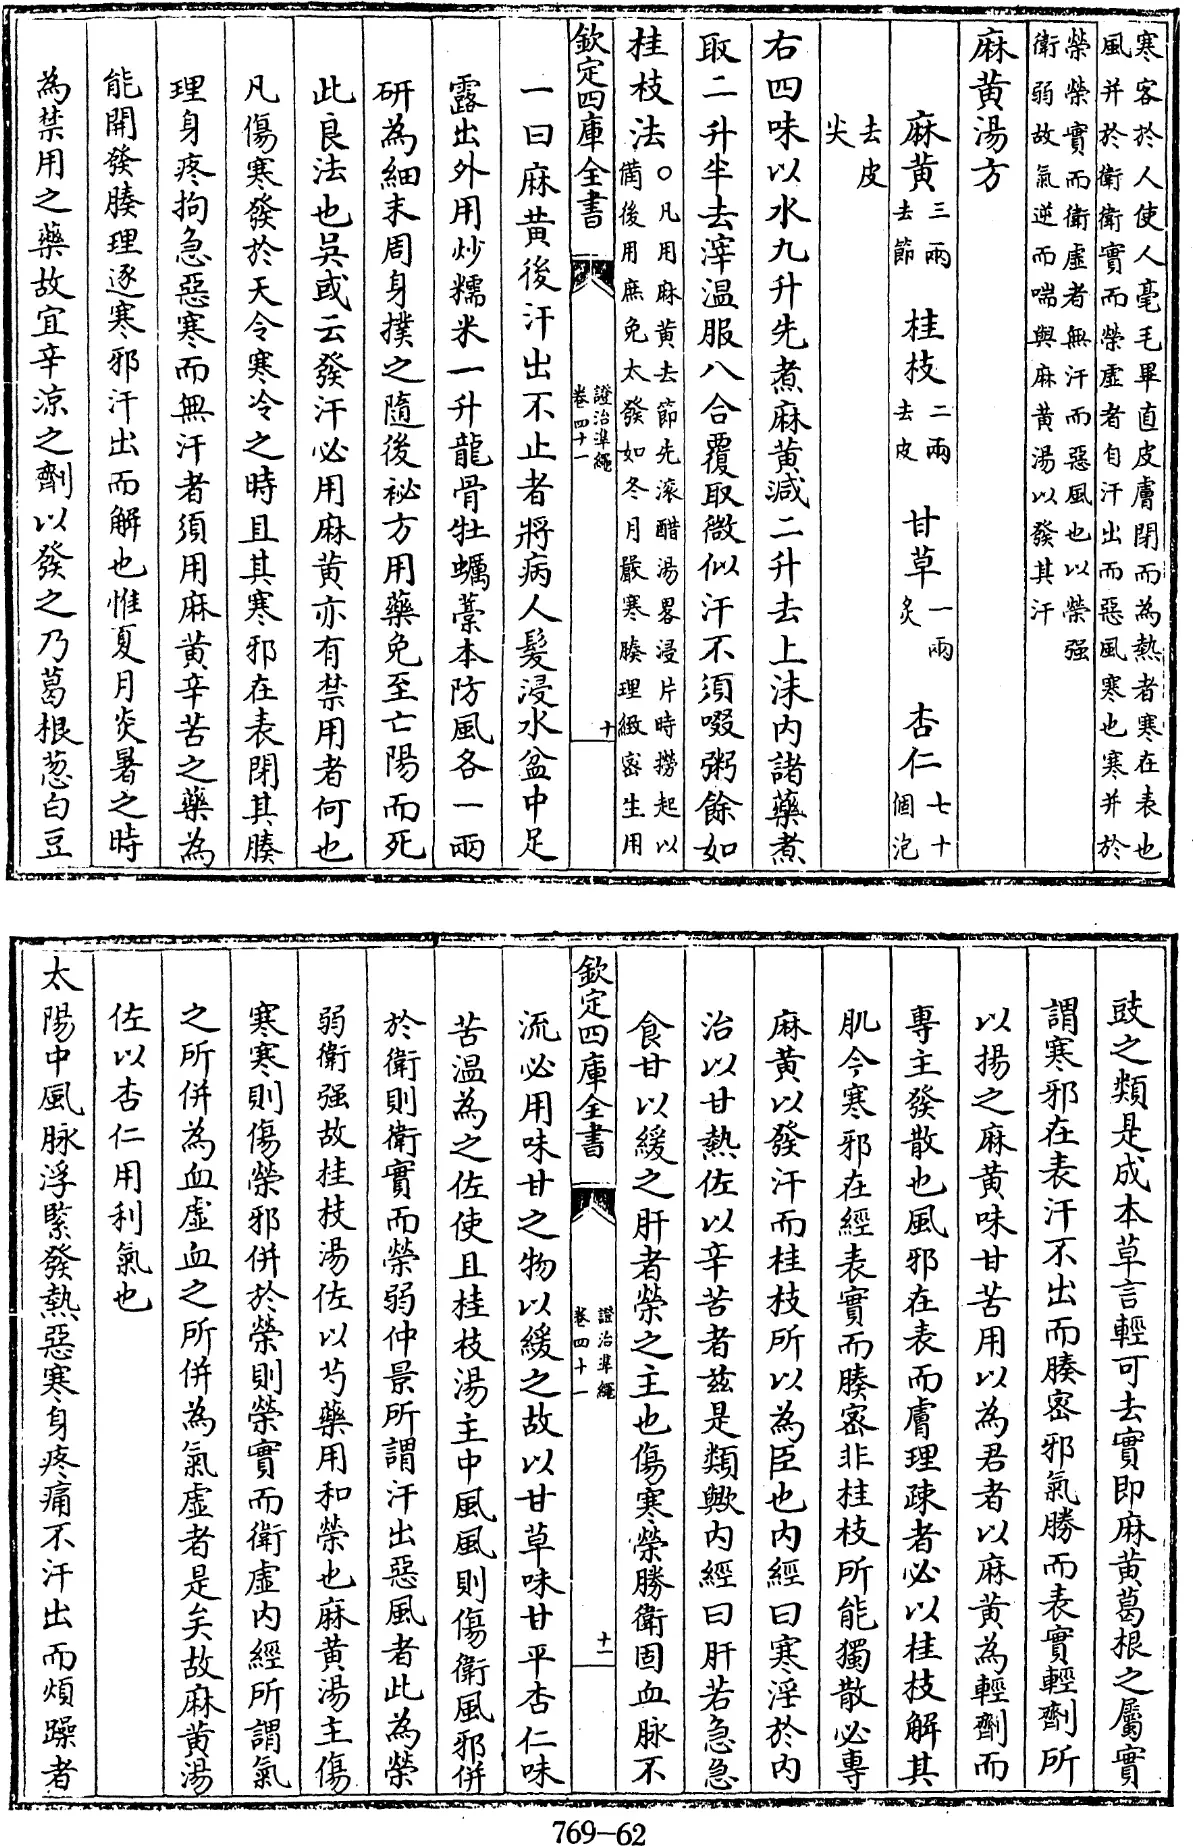 寒客於人使人毫毛畢直皮膚閉而為熱者寒在表也
風并於衛衛實而榮虛者自汗出而惡風寒也寒并於
榮榮實而衛虛者無汗而惡風也以榮强
衛弱故氣逆而喘與麻黄湯以發其汗
麻黄湯方
麻黄三兩去節 桂枝二兩去皮 甘草一兩炙 杏仁七十個泡
去皮尖
右四味以水九升先煮麻黄減二升去上沫内諸藥煮
取二升半去滓温服八合覆取微似汗不須啜粥餘如
桂枝法○凡用麻黄去節先滚醋湯畧浸片時撈起以
備後用庶免太發如冬月嚴寒腠理緻密生用
欽定四庫全書
證治準繩
卷四十一
十
一曰麻黄後汗出不止者將病人髮浸水盆中足
露出外用炒糯米一升龍骨牡蠣藁本防風各一兩
研為細末周身撲之隨後祕方用藥免至亡陽而死
此良法也吳或云發汗必用麻黄亦有禁用者何也
凡傷寒發於天令寒冷之時且其寒邪在表閉其腠
理身疼拘急惡寒而無汗者須用麻黄辛苦之藥為
能開發腠理逐寒邪汗出而解也惟夏月炎暑之時
為禁用之藥故宜辛凉之劑以發之乃葛根葱白豆
豉之類是成本草言輕可去實即麻黄葛根之屬實
謂寒邪在表汗不出而腠密邪氣勝而表實輕劑所
以揚之麻黄味甘苦用以為君者以麻黄為輕劑而
專主發散也風邪在表而膚理疎者必以桂枝解其
肌今寒邪在經表實而腠密非桂枝所能獨散必專
麻黄以發汗而桂枝所以為臣也内經曰寒淫於内
治以甘熱佐以辛苦者兹是類歟内經曰肝若急急
食甘以緩之肝者榮之主也傷寒榮勝衛固血脉不
欽定四庫全書
證治準繩
卷四十一
十一
流必用味甘之物以緩之故以甘草味甘平杏仁味
苦温為之佐使且桂枝湯主中風風則傷衛風邪併
於衛則衛實而榮弱仲景所謂汗出惡風者此為榮
弱衛强故桂枝湯佐以芍藥用和榮也麻黄湯主傷
寒寒則傷榮邪併於榮則榮實而衛虛内經所謂氣
之所併為血虛血之所併為氣虛者是矣故麻黄湯
佐以杏仁用利氣也
太陽中風脉浮緊發熱惡寒身疼痛不汗出而煩躁者
769-62